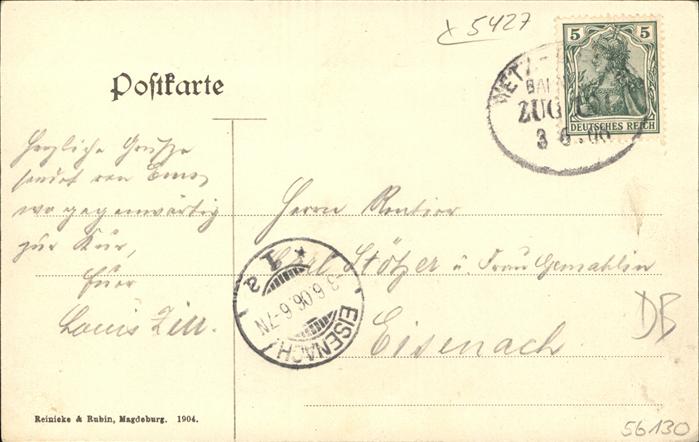 x 5427
5 5
DEUTSCHES REICH
METZ
BA
ZUG
3 6 . 06
Postkarte
Herzliche Grüsse
sendet von Ems,
wo gegenwärtig
zur Kur,
Euer
Louis Zill.
Herrn Rentier
Carl Stötzer u. Frau Gemahlin
Eisenach.
EISENACH
3.6.06.6-7N
* 1 s
DB
Reinicke & Rubin, Magdeburg. 1904.
56130